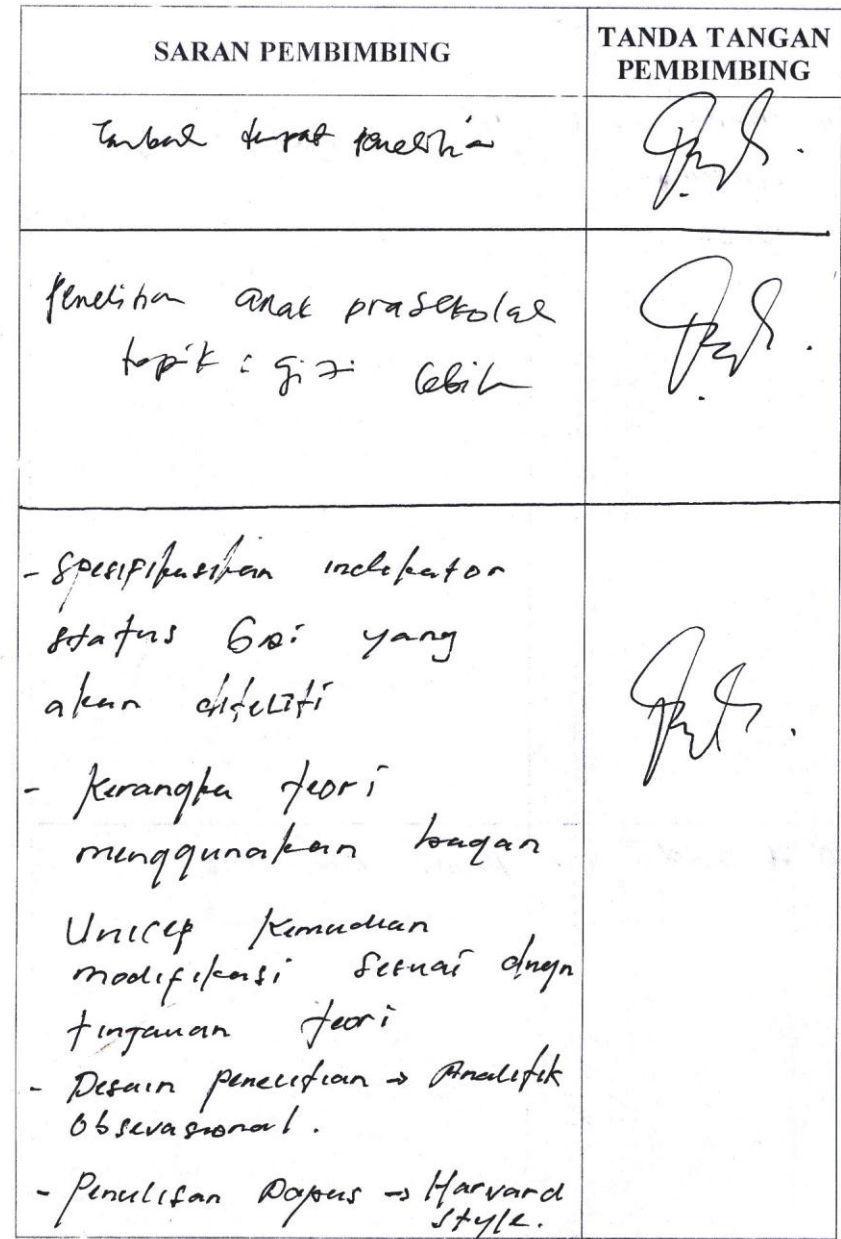 SARAN PEMBIMBING
TANDA TANGAN
PEMBIMBING
Tambah tempat penelitian
Penelitian anak prasekolah
topik : gizi lebih
- Spesifikasikan indikator
status Gizi yang
akan diteliti
- Kerangka teori
menggunakan bagan
Unicef kemudian
modifikasi sesuai dngn
tinjauan teori
- Desain penelitian → Analitik
Obsevasional.
- Penulisan Dapus → Harvard
style.